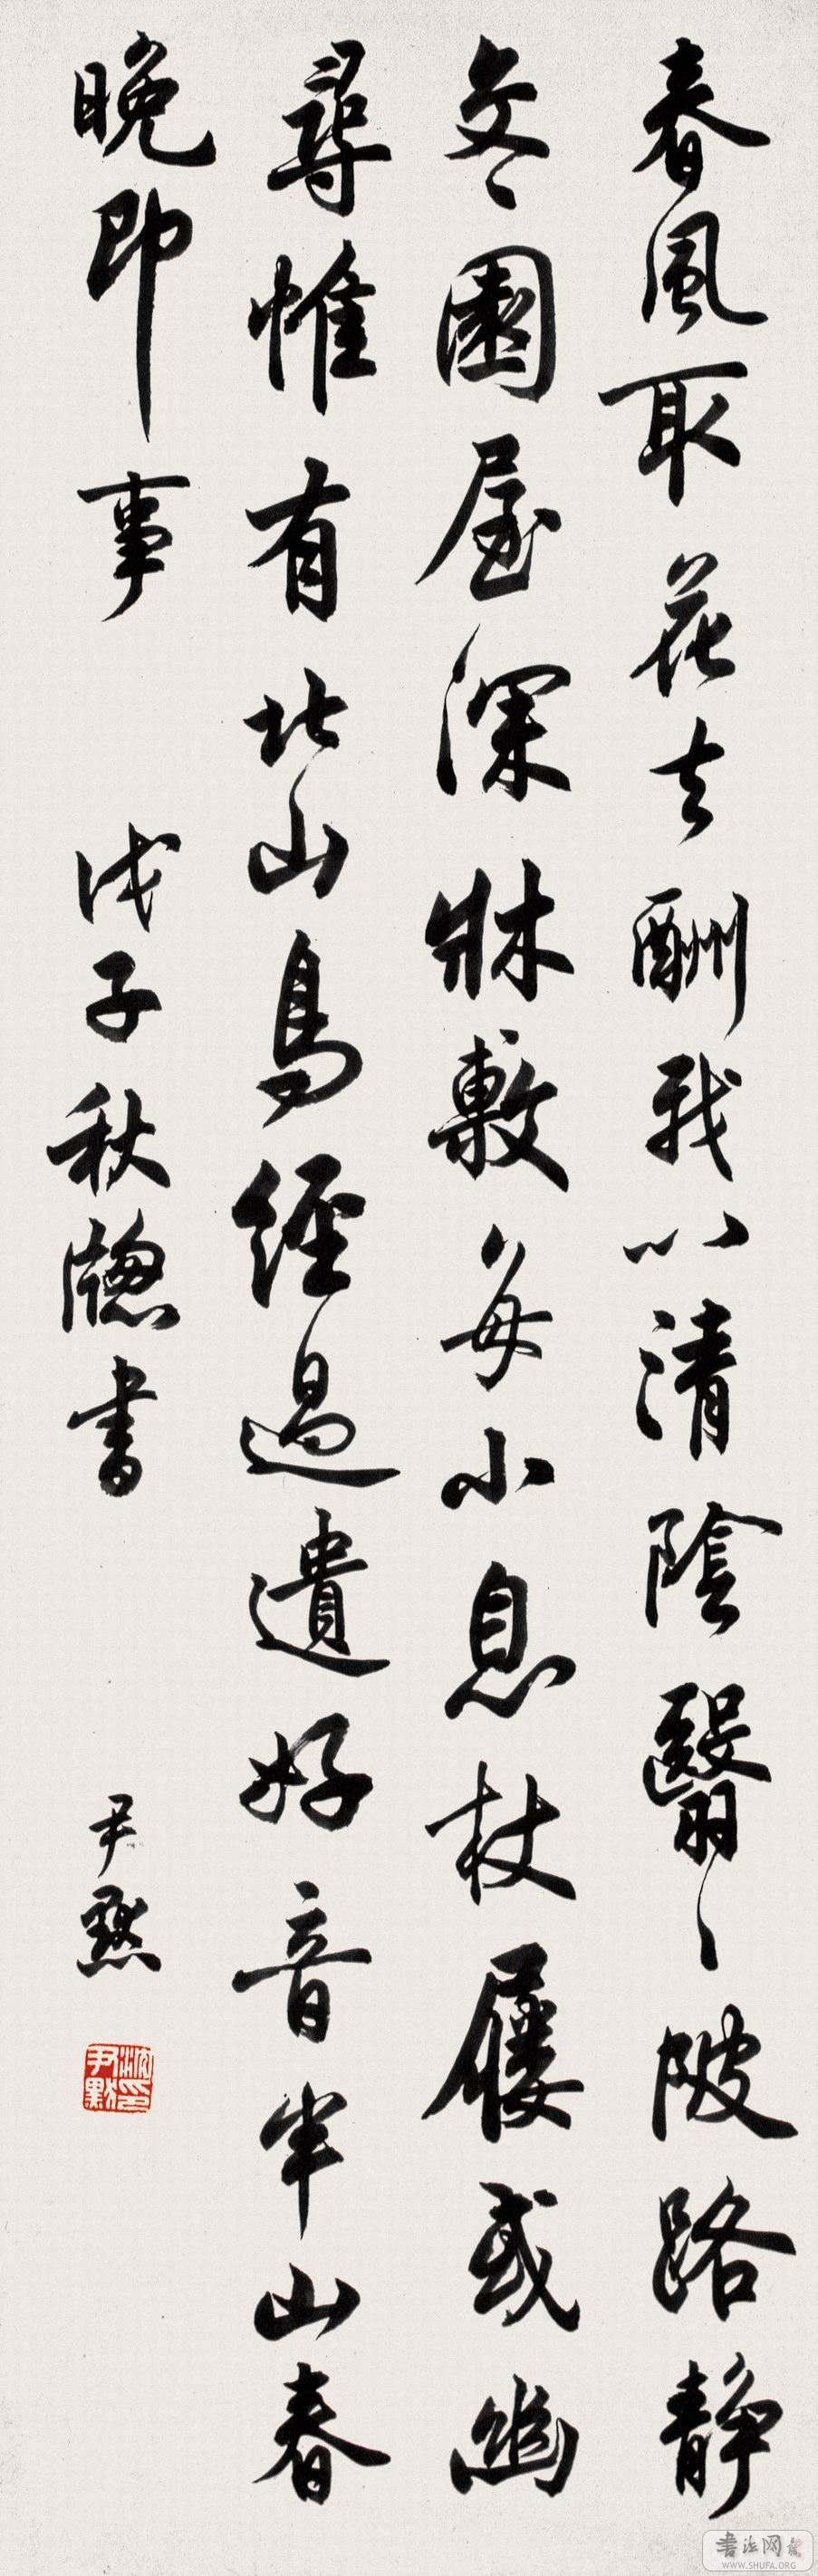 春風取花去酬我以清陰翳〻陂路静
交〻園屋深牀敷每小息杖屨或幽
尋惟有北山鳥經過遺好音半山春
晚即事 戊子秋牕書 尹默
沈尹默印
書法网
WWW.SHUFA.ORG